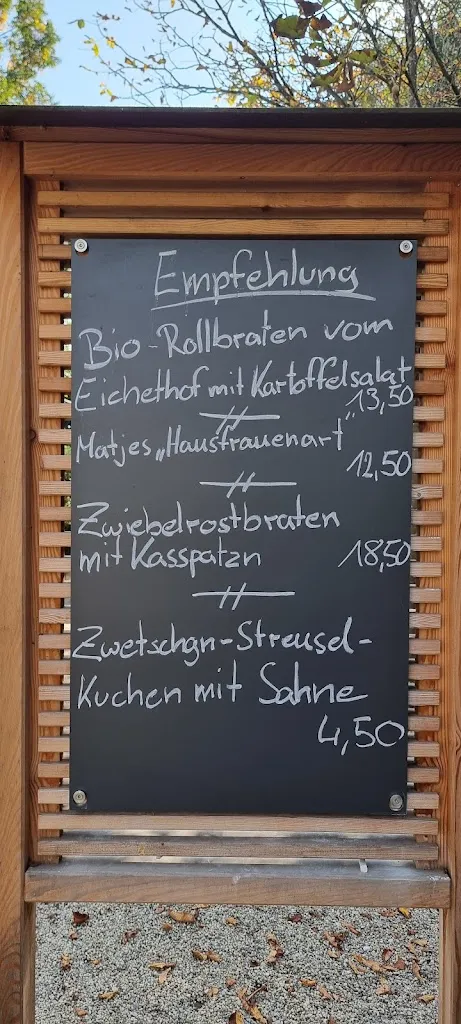 Empfehlung
Bio-Rollbraten vom
Eichethof mit Kartoffelsalat
13,50
Matjes „Hausfrauenart"
12,50
Zwiebelrostbraten
mit Kasspatzn 18,50
Zwetschgn-Streusel-
Kuchen mit Sahne
4,50